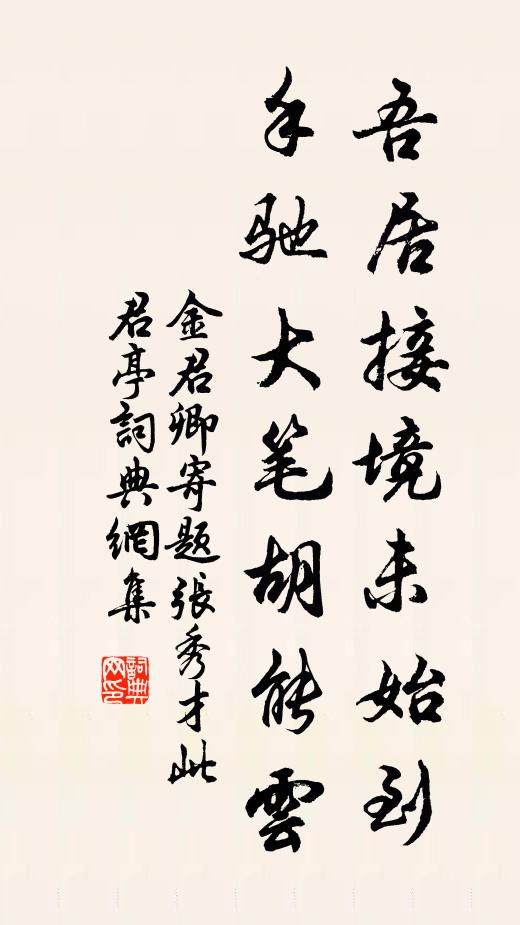 吾居接境未始到
手驰大笔胡能雲
金君卿寄题張秀才此
君亭詞典網集
詞典网印